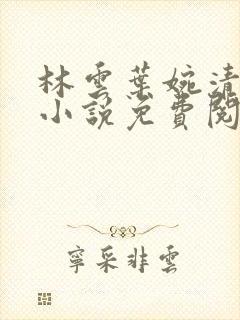 林雲葉婉清
小說免費閱
寧采非雲